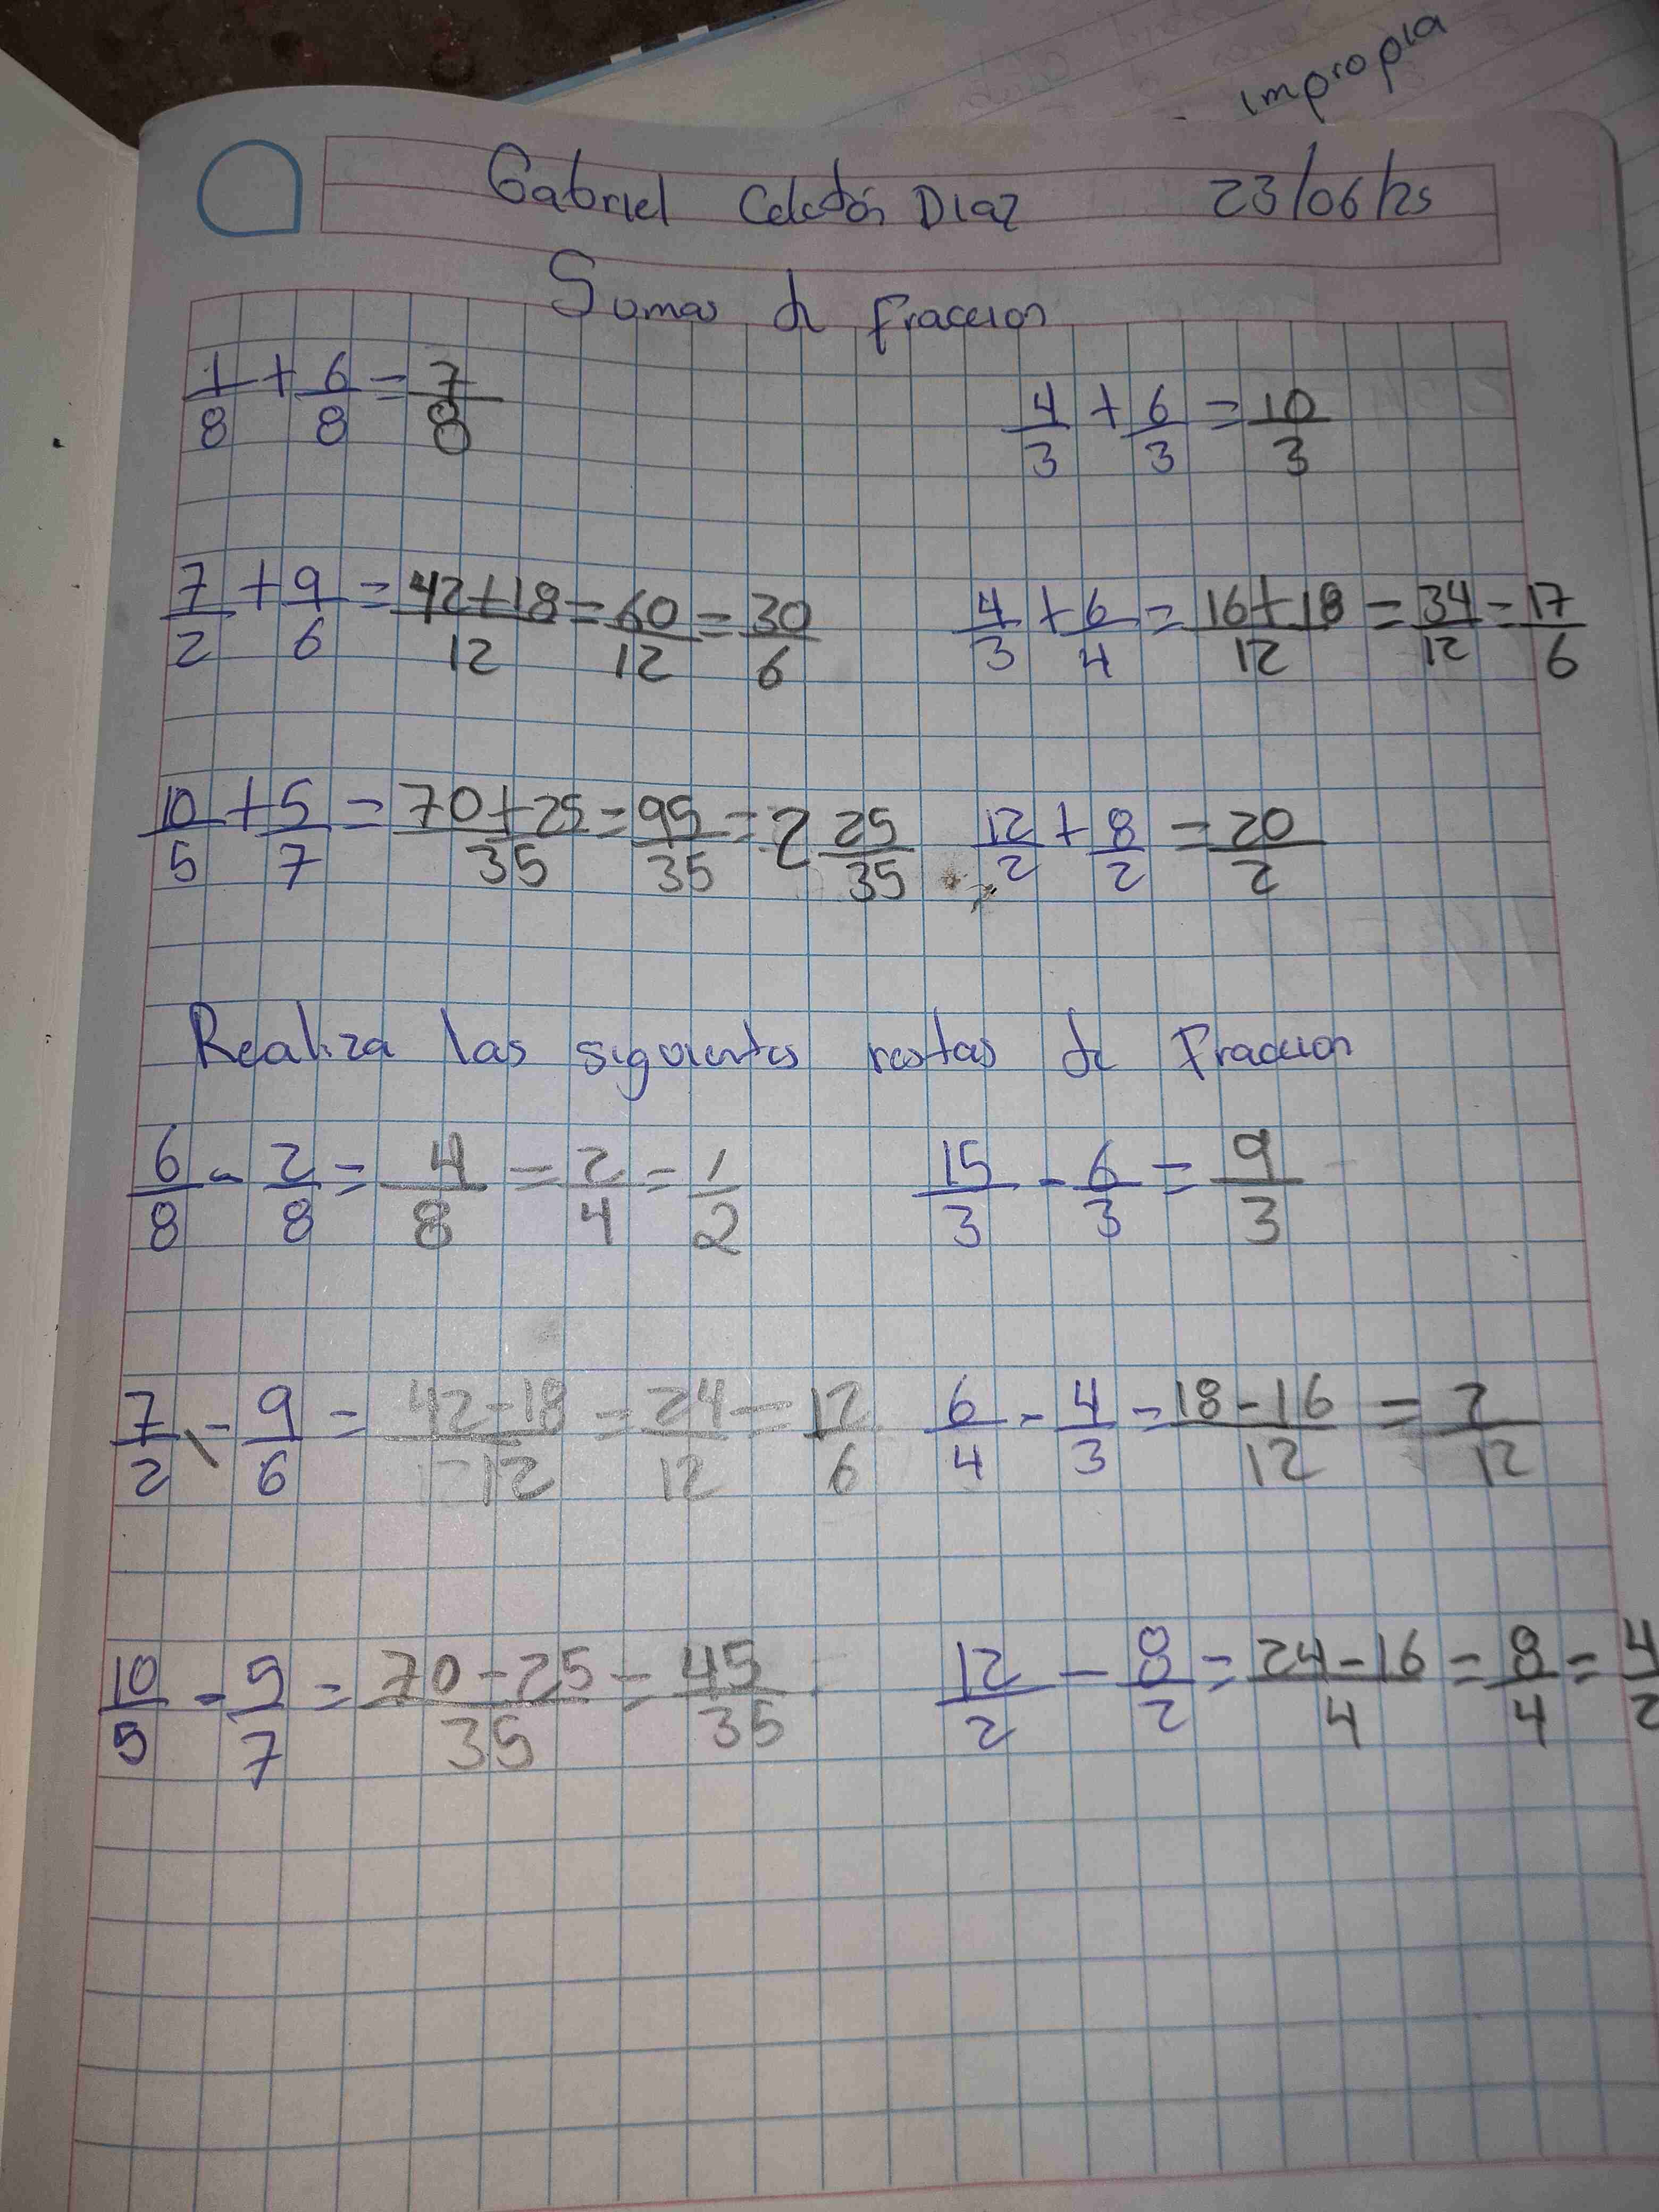 impropia
Gabriel Celedón Diaz 23/06/25
Sumas de fraccion
1/8 + 6/8 = 7/8 4/3 + 6/3 = 10/3
7/2 + 9/6 = 42+18/12 = 60/12 = 30/6 4/3 + 6/4 = 16+18/12 = 34/12 = 17/6
10/5 + 5/7 = 70+25/35 = 95/35 = 2 25/35 12/2 + 8/2 = 20/2
Realiza las siguientes restas de Fraccion
6/8 - 2/8 = 4/8 = 2/4 = 1/2 15/3 - 6/3 = 9/3
7/2 - 9/6 = 42-18/12 = 24/12 = 12/6 6/4 - 4/3 = 18-16/12 = 2/12
10/5 - 5/7 = 70-25/35 = 45/35 12/2 - 8/2 = 24-16/4 = 8/4 = 4/2